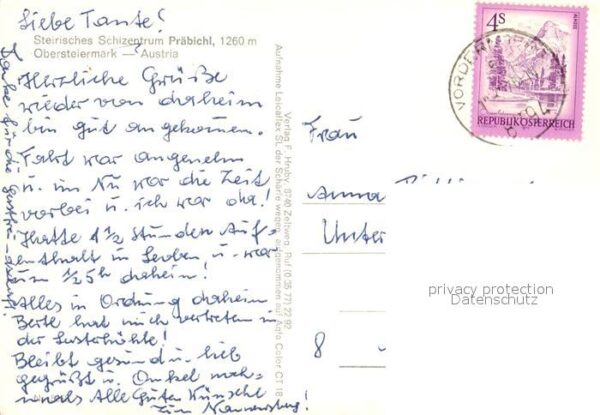 Liebe Tante!
Steirisches Schizentrum Präbichl, 1260 m
Obersteiermark — Austria
Herzliche Grüße
wieder von daheim
bin gut angekommen.
Fahrt war angenehm
u. im Nu war die Zeit
vorbei u. ich war da!
Hatte 1 1/2 Stunden Auf-
enthalt in Leoben u. war
um 1/2 5h daheim!
Alles in Ordnung daheim
Berta hat mich vertreten in
der
Bleibt gesund u. lieb
gegrüßt u. Onkel noch-
mals Alle Guten Wünsche
zum Namenstag!
Danke für die Gastfreundschaft!
Verlag F. Hruby, 8740 Zeltweg, Ruf (0 35 77) 22 92
Aufnahme Leicaflex SL der Schärfe wegen, aufgenommen auf Agfa Color CT 18
4S
REPUBLIK ÖSTERREICH
VORDERNBERG
Frau
Anna
Unter
8
privacy protection
Datenschutz